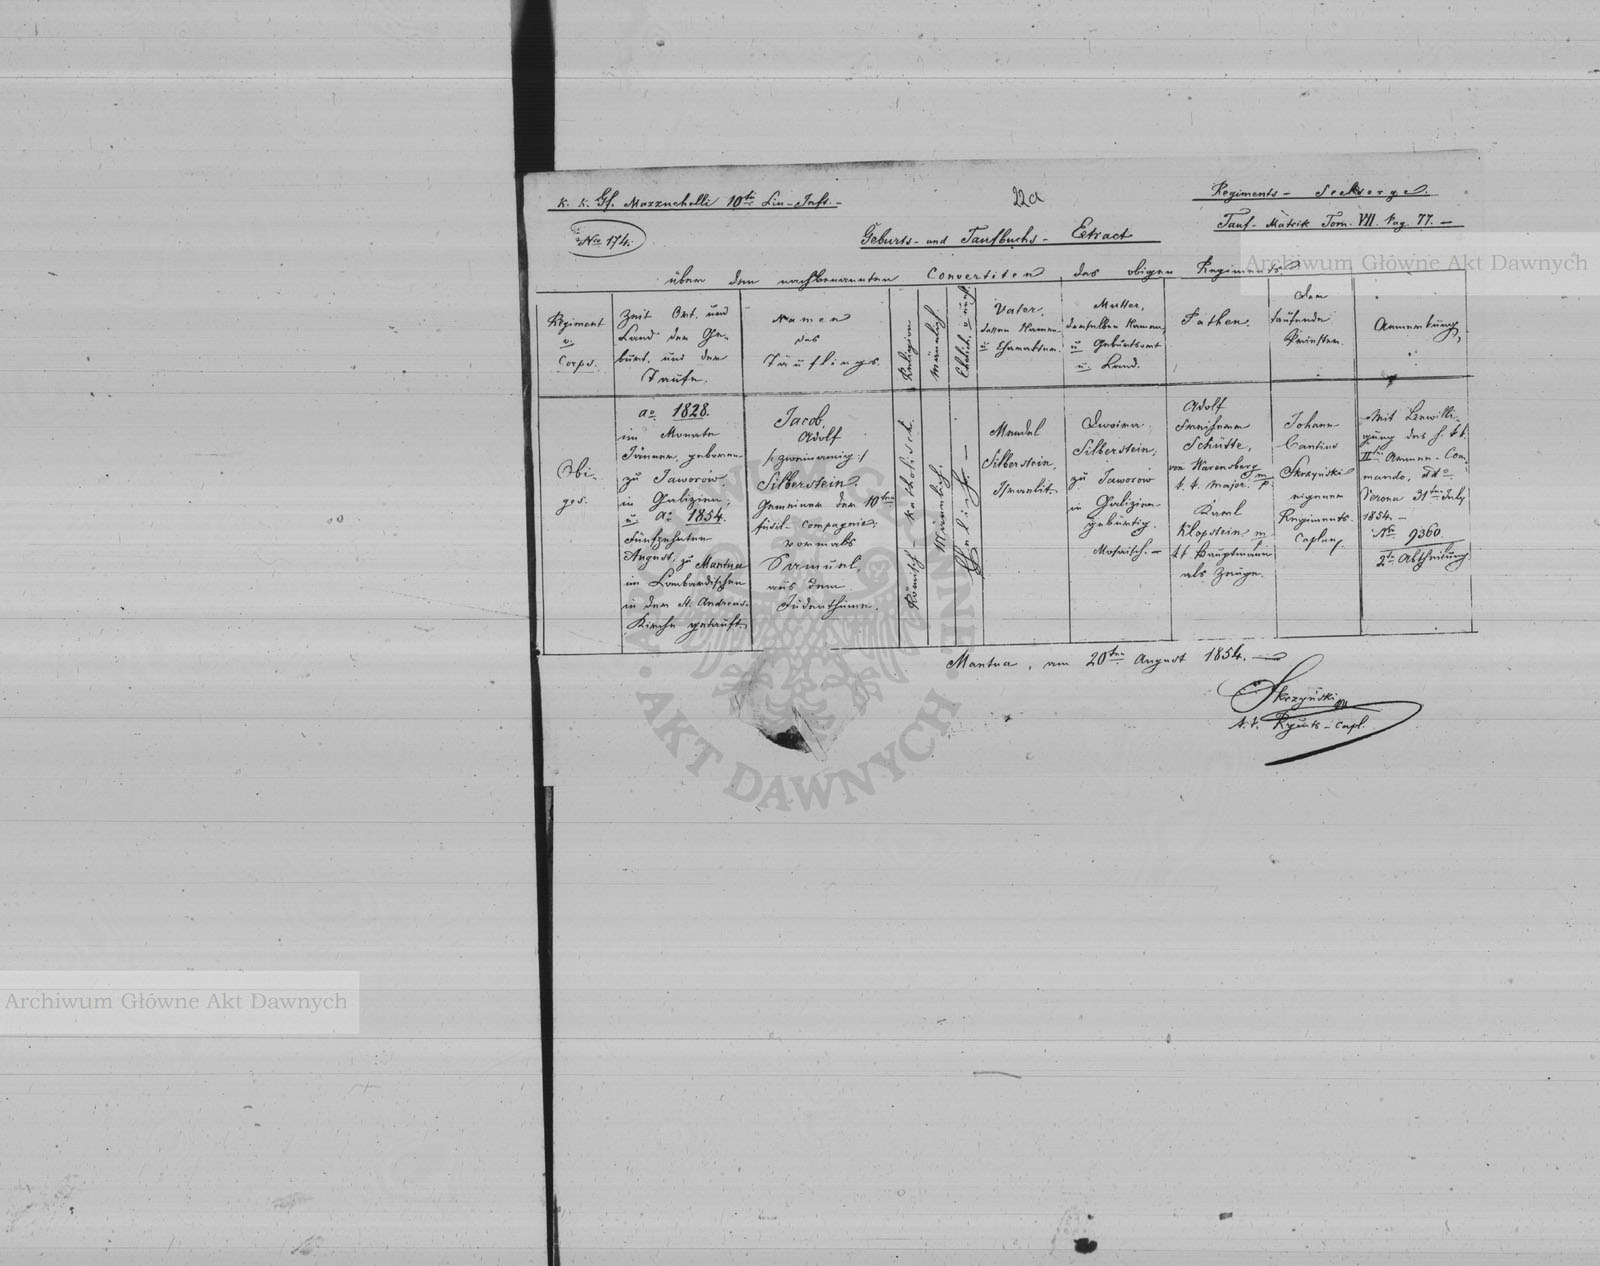 K. K. Gf. Mazzuchelli 10ten Lin-Inft.-
22a
Regiments - Seelsorge.
Tauf- Matrik Tom. VII. Pag. 77. -
Nro 174.
Geburts- und Taufbuchs- Extract
über den nachbenannten Convertiten des obigen Regiments
Regiment
o.
Corps.
Zeit Ort. und
Land der Ge-
burt. und der
Taufe.
Namen
des
Täuflings.
Religion
Männlich
Ehelich o unehl.
Vater.
dessen Namen
u: Charakter.
Mutter,
derselben Namen,
u Geburtsort
u. Land.
Pathen.
Der
taufende
Priester.
Anmerkung,
Obi-
ges.
ao 1828.
im Monate
Jänner, geboren
zu Jaworów,
in Galizien,
u ao 1854.
fünfzehnten
August, zu Mantua
im Lombardischen
in der St. Andreas-
Kirche getauft.
Jacob,
Adolf
/: zweinamig :/
Silberstein.
Gemeiner der 10ten
Füsil- Compagnie,
vormals
Samuel,
aus dem
Judenthume.
Römisch - katholisch.
Männlich.
Ehelich. -
Mendel
Silberstein,
Israelit.
Dwoira
Silberstein,
zu Jaworów
in Galizien
gebürtig.
Mosaisch. -
Adolf
Freiherr
Schütte,
von Warensberg
k. k. Major. mp
Karl
Klopstein m
kk Hauptmann
als Zeuge.
Johann
Cantius
Skrzyński
eigener
Regiments-
Caplan,
Mit Bewilli-
gung des h. kk.
IIten Armee-Com-
mando, ddo
Verona 31ten July
1854. -
Nro 9360
2te Abtheilung
Mantua, am 20ten August 1854. -
Skrzyński m
k. k. Rgmts-Capl.
Archiwum Główne Akt Dawnych
Archiwum Główne Akt Dawnych
ARCHIWUM GŁÓWNE · AKT DAWNYCH ·